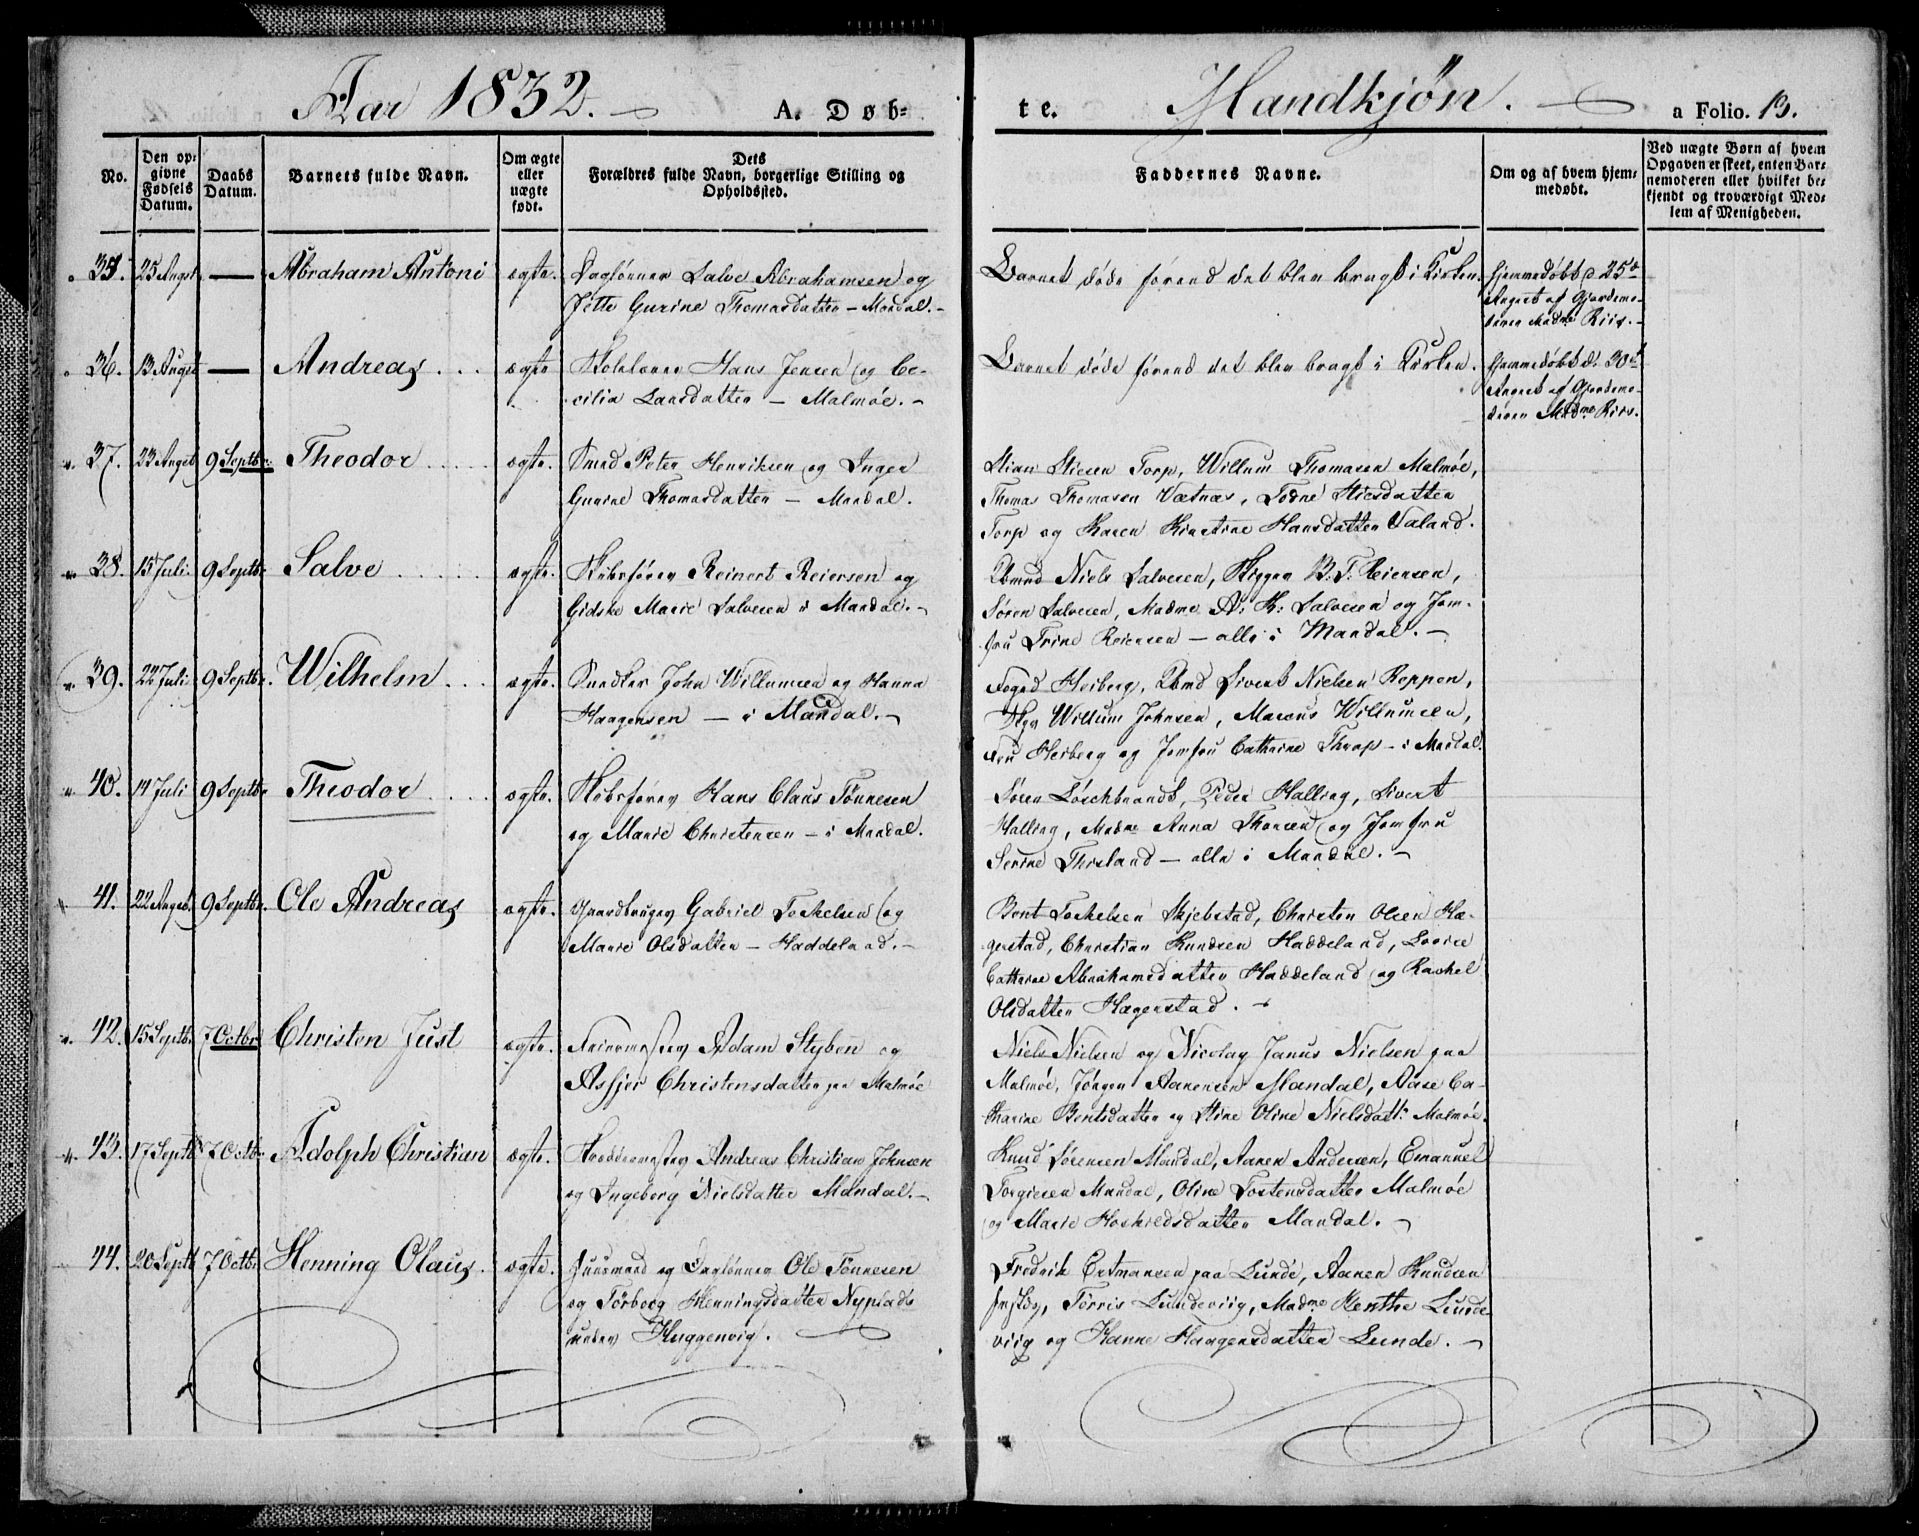 Aar 1832. A. Døb-
te. Mandkjøn. a Folio. 13.
No.
Den op-
givne
Fødsels
Datum.
Daabs
Datum.
Barnets fulde Navn.
Om ægte
eller
uægte
født.
Dets
Forældres fulde Navn, borgerlige Stilling og
Opholdssted.
Faddernes Navne.
Om og af hvem hjem-
medøbt.
Ved uægte Børn af hvem
Opgaven er skeet, enten Bar-
nemoderen eller hvilket be-
kjendt og troværdigt Med-
lem af Menigheden.
35. 25 Augst — Abraham Antoni ægte. Daglønner Salve Abrahamsen og
Jette Gurine Thomasdatter – Mandal. –
Barnet døde førend det blev bragt i Kirken.
hjemmedøbt d 25de
August af Gjordemo-
deren Madme Riis. –
36. 13 Augst — Andreas ægte Skolelærer Hans Jensen og Ce-
cilia Larsdatter – Malmöe. –
Barnet døde førend det blev bragt i Kirken.
hjemmedøbt d. 30te
August af Gjordemo-
deren Madme Riis.
37. 23 Augst 9 Septbr. Theodor ægte. Smed Peter Henriksen og Inger
Gurine Thomasdatter – Mandal.
Stian Stiesen Torp, Willum Thomasen Malmöe,
Thomas Thomasen Vætnæs, Todne Stiesdatter
Torp og Karen Kirstine Hansdatter Valand.
38. 15 Juli 9 Septbr. Salve ægte. Skibsfører Reinert Reiersen og
Gidske Marie Salvesen i Mandal. –
Kbmd Niels Salvesen, Skipper B. T. Reiersen,
Søren Salvesen, Madme A: K: Salvesen og Jom-
fru Trine Reiersen – alle i Mandal. –
39. 22 Juli 9 Septbr. Wilhelm ægte. Snedker John Willumsen og Hanna
Haagensen – i Mandal. –
Foged Heiberg, Kbmd Sivert Nielsen Reppen,
Skpr Willum Johnsen, Marcus Willumsen,
Fru Heiberg og Jomfru Cathrine Thrap – i Mandal.
40. 14 Juli 9 Septbr Theodor ægte. Skibsfører Hans Claus Tönnesen
og Marie Christensen – i Mandal.
Søren Löschbrandt, Peder Halling, Sivert
Halling, Madme Anna Thorsen og Jomfru
Serine Thisland – alle i Mandal. –
41. 22 Augst. 9 Septbr. Ole Andreas ægte. Gaardbruger Gabriel Torkelsen og
Marie Olsdatter – Haddeland. –
Bent Torkelsen Skjebstad, Christen Olsen Hæ-
gerstad, Christian Knudsen Haddeland, Lovise
Cathrine Abrahamsdatter Haddeland og Rachel
Olsdatter Hægerstad. –
42. 15 Septbr. 7 Octbr Christen Just ægte. Feiermester Adam Styben og
Assjer Christensdatter paa Malmöe
Niels Nielsen og Nicolay Janus Nielsen paa
Malmöe, Jörgen Aanensen Mandal, Aase Ca-
tharine Bentsdatter og Stine Oline Nielsdatt: Malmöe.
43. 17 Septbr 7 Octbr. Adolph Christian ægte. Skreddermester Andreas Christian Johnsen
og Ingeborg Nielsdatter Mandal. –
Knud Sörensen Mandal, Aanen Andersen, Emanuel
Torgiesen Mandal, Oline Tostensdatter Malmöe
og Marie Hoskiedsdatter Mandal. –
44. 20 Septbr 7 Octbr. Henning Olaus. ægte. Huusmand og Daglønner Ole Tönnesen
og Törborg Henningsdatter Nyplads
under Skuggevig.
Fredrik Ertmansen paa Lunde, Aanen Knudsen
Torris Lundeviig, Madme Kenthe Lunde-
viig og Hanne Haagensdatter Lunde. –